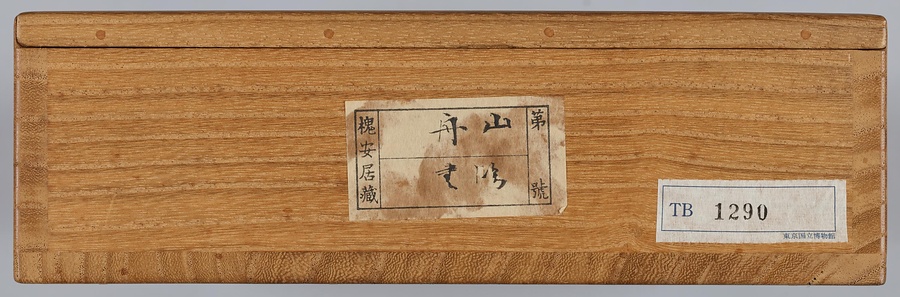 第 號
山
舟
槐安居藏
TB 1290
東京国立博物館